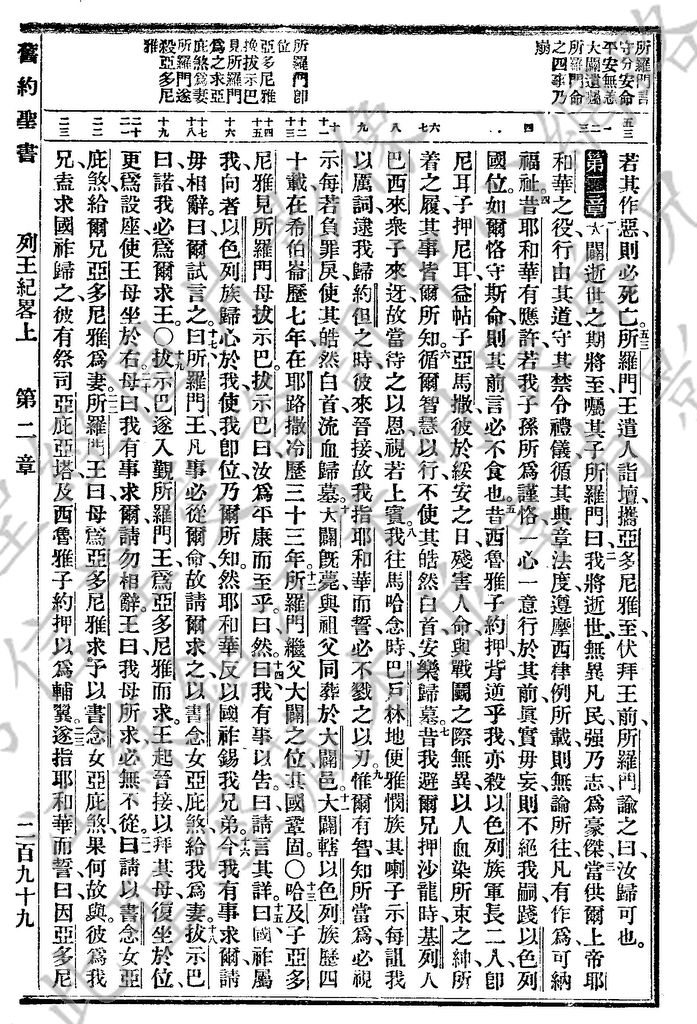 所羅門言
守分安命
平安無恙
大闢遺囑
所羅門命
之四事乃
崩
所羅門即
位
亞多尼雅
挽拔示巴
見所羅門
爲之求亞
庇煞爲妻
所羅門遂
殺亞多尼
雅
若其作惡則必死亡所羅門王遣人詣壇攜亞多尼雅至伏拜王前所羅門諭之曰汝歸可也
第二章 大闢逝世之期將至囑其子所羅門曰我將逝世無異凡民强乃志爲豪傑當供爾上帝耶
和華之役行由其道守其禁令禮儀循其典章法度遵摩西律例所載則無論所往凡有作爲可納
福祉昔耶和華有應許若我子孫所爲謹恪一心一意行於其前眞實毋妄則不絕我嗣踐以色列
國位如爾恪守斯命則其前言必不食也昔西魯雅子約押背逆乎我亦殺以色列族軍長二人卽
尼耳子押尼耳益帖子亞馬撒彼於綏安之日殘害人命與戰鬭之際無異以人血染所束之紳所
着之履其事皆爾所知循爾智慧以行不使其皓然白首安樂歸墓昔我避爾兄押沙龍時基列人
巴西來衆子來迓故當待之以恩視若上賓我往馬哈念時巴戶林地便雅憫族其喇子示每訕我
以厲詞逮我歸約但之時彼來晉接故我指耶和華而誓必不戮之以刃惟爾有智知所當爲必視
示每若負罪戾使其皓然白首流血歸墓大闢旣薨與祖父同葬於大闢邑大闢轄以色列族歷四
十載在希伯崙歷七年在耶路撒冷歷三十三年所羅門繼父大闢之位其國鞏固○哈及子亞多
尼雅見所羅門母拔示巴拔示巴曰汝爲平康而至乎曰然曰我有事以告曰請言其詳曰國祚屬
我向者以色列族歸心於我使我卽位乃爾所知然耶和華反以國祚錫我兄弟今我有事求爾請
毋相辭曰爾試言之曰所羅門王凡事必從爾命故請爾求之以書念女亞庇煞給我爲妻拔示巴
曰諾我必爲爾求王○拔示巴遂入覲所羅門王爲亞多尼雅而求王起晉接以拜其母復坐於位
更爲設座使王母坐於右母曰我有事求爾請勿相辭王曰我母所求必無不從曰請以書念女亞
庇煞給爾兄亞多尼雅爲妻所羅門王曰母爲亞多尼雅求予以書念女亞庇煞果何故與彼爲我
兄盍求國祚歸之彼有祭司亞庇亞塔及西魯雅子約押以爲輔翼遂指耶和華而誓曰因亞多尼
舊約聖書 列王紀畧上 第二章 二百九十九